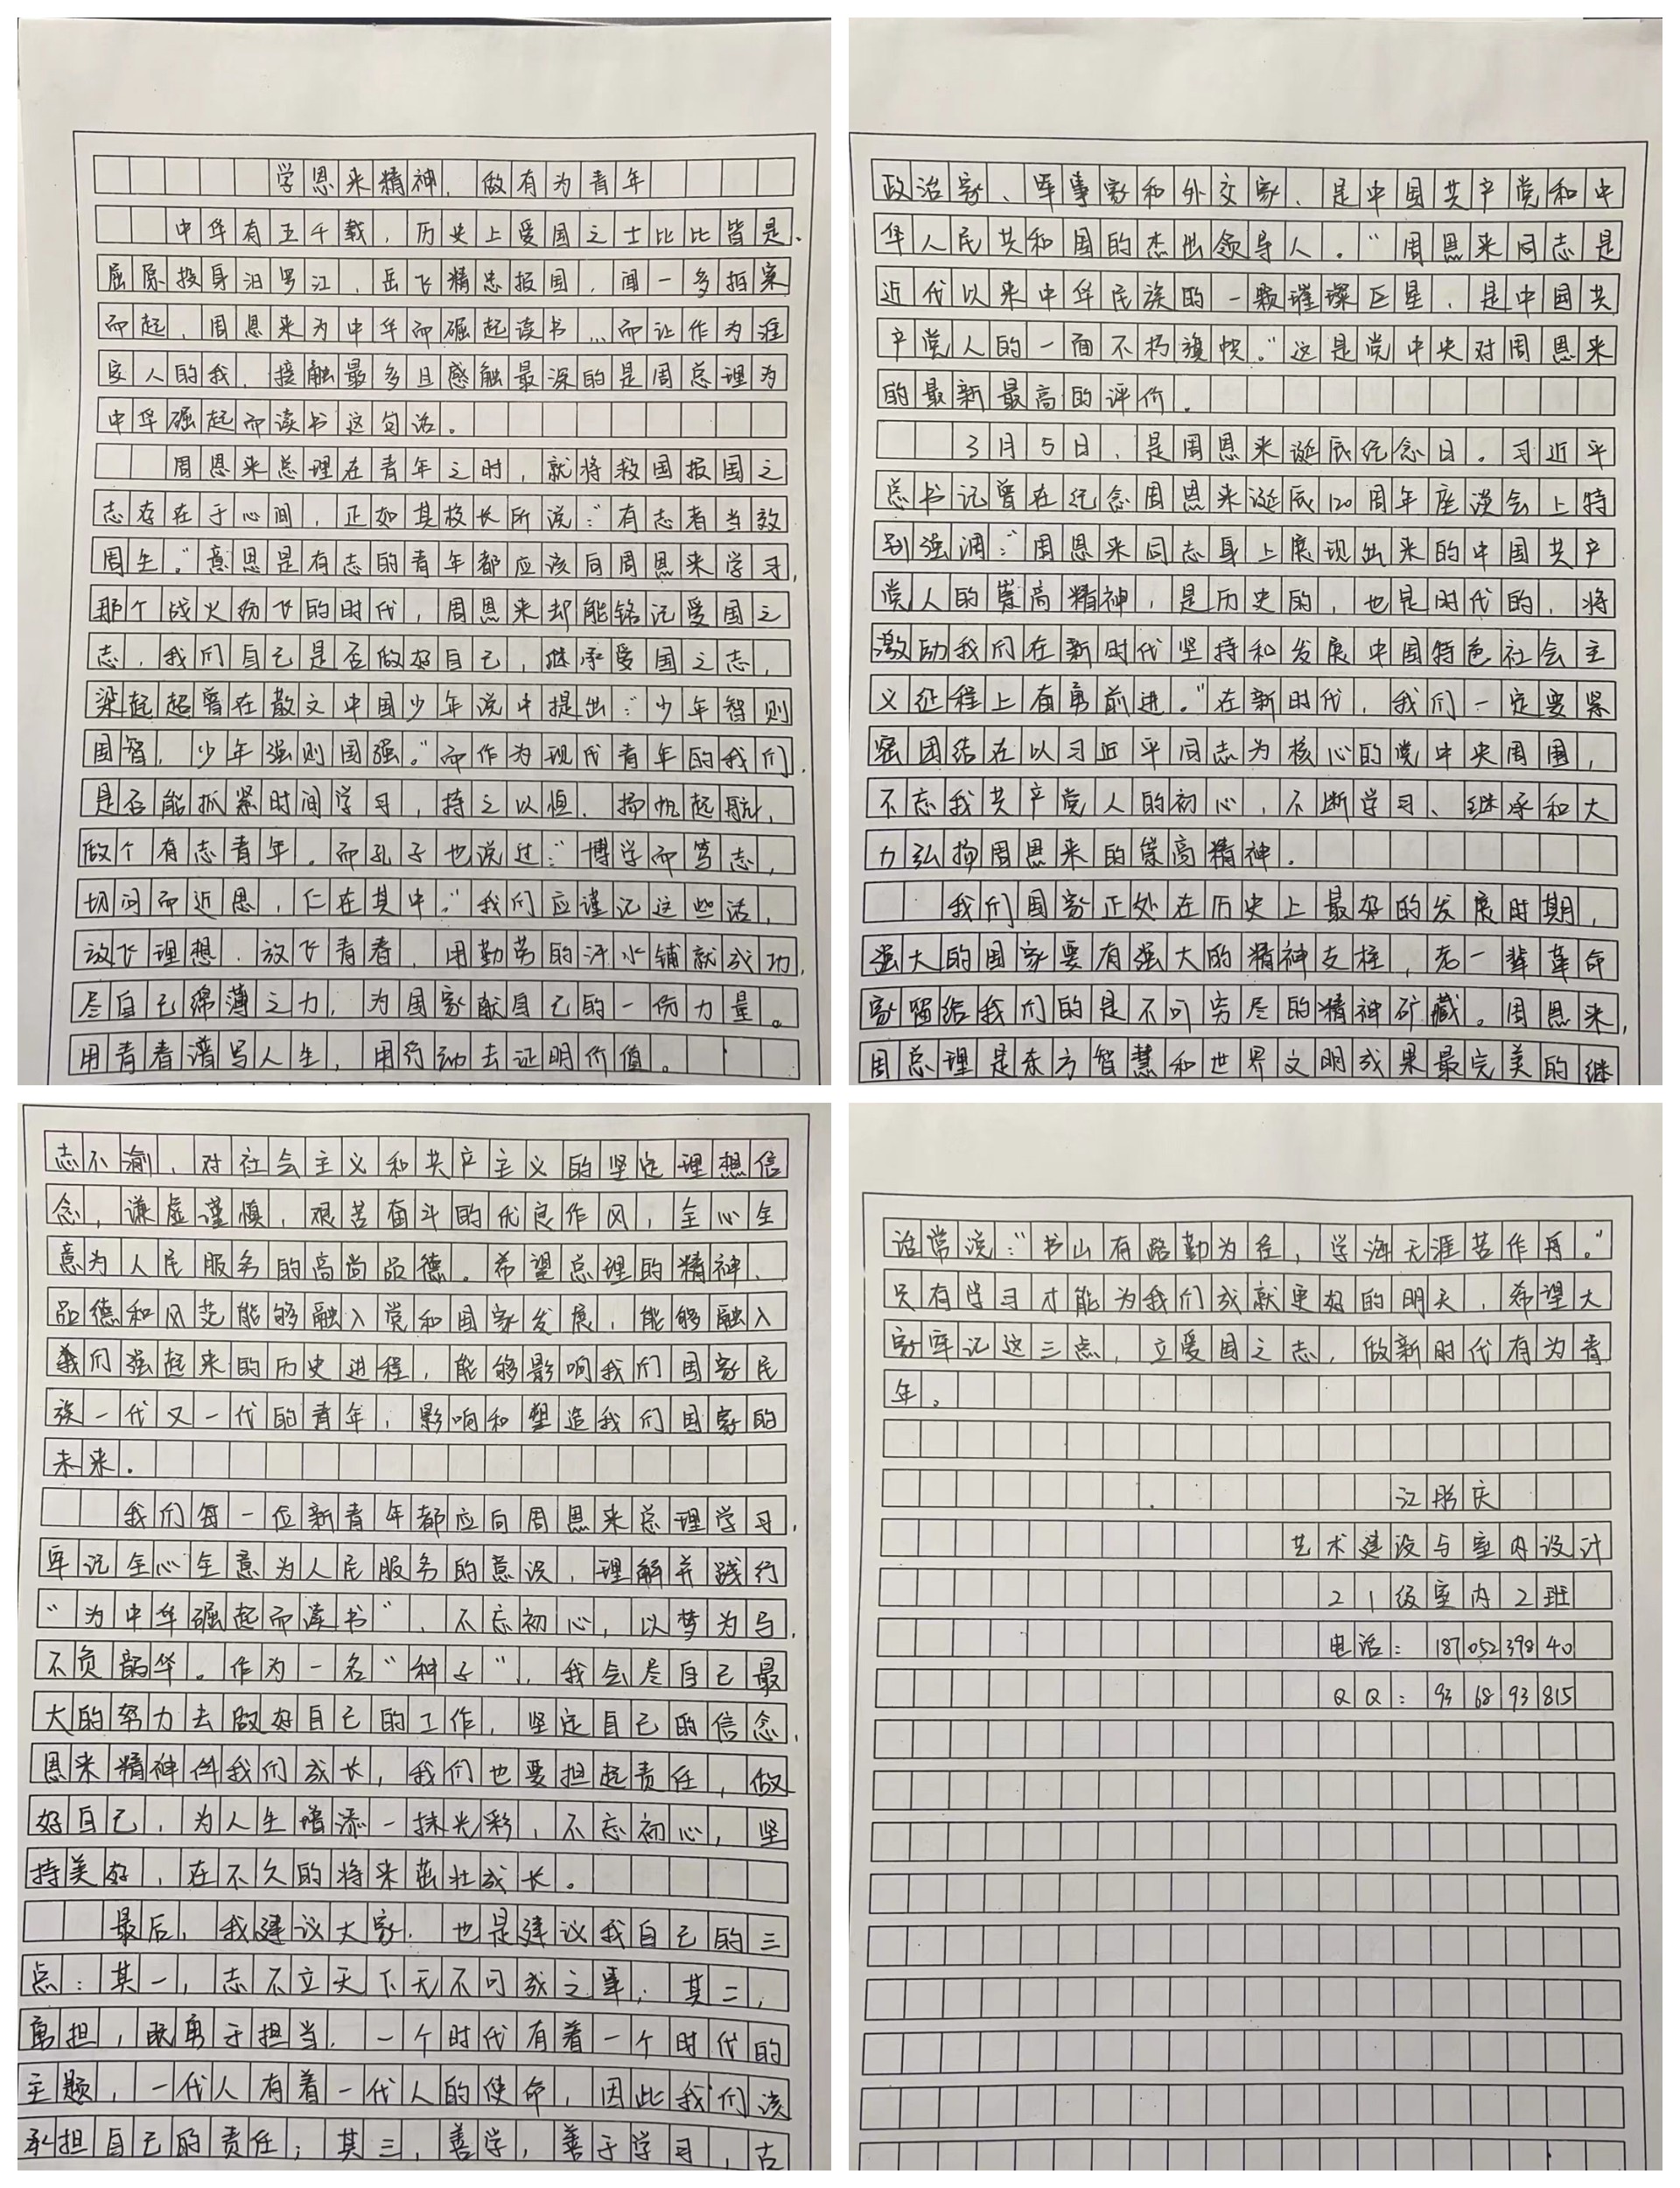 学恩来精神、做有为青年
中华有五千载，历史上爱国之士比比皆是、
屈原投身汨罗江，岳飞精忠报国，闻一多拍案
而起，周恩来为中华而崛起读书...而让作为淮
安人的我、接触最多且感触最深的是周总理为
中华崛起而读书这句话。
周恩来总理在青年之时，就将救国报国之
志存在于心间，正如其校长所说：“有志者当效
周生。”意思是有志的青年都应该向周恩来学习，
那个战火纷飞的时代，周恩来却能铭记爱国之
志，我们自己是否做好自己，继承爱国之志，
梁起超曾在散文中国少年说中提出：“少年智则
国智，少年强则国强。”而作为现代青年的我们，
是否能抓紧时间学习，持之以恒、扬帆起航，
做个有志青年。而孔子也说过：“博学而笃志，
切问而近思，仁在其中。”我们应谨记这些话，
放飞理想、放飞青春，用勤劳的汗水铺就成功，
尽自己绵薄之力，为国家献自己的一份力量。
用青春谱写人生，用行动去证明价值。
政治家、军事家和外交家、是中国共产党和中
华人民共和国的杰出领导人。“周恩来同志是
近代以来中华民族的一颗璀璨巨星，是中国共
产党人的一面不朽旗帜。”这是党中央对周恩来
的最新最高的评价。
3月5日，是周恩来诞辰纪念日。习近平
总书记曾在纪念周恩来诞辰120周年座谈会上特
别强调：“周恩来同志身上展现出来的中国共产
党人的崇高精神，是历史的，也是时代的，将
激励我们在新时代坚持和发展中国特色社会主
义征程上有勇前进。”在新时代，我们一定要紧
密团结在以习近平同志为核心的党中央周围，
不忘我共产党人的初心，不断学习、继承和大
力弘扬周恩来的崇高精神。
我们国家正处在历史上最好的发展时期，
强大的国家要有强大的精神支柱，老一辈革命
家留给我们的是不可穷尽的精神矿藏。周恩来，
周总理是东方智慧和世界文明成果最完美的继
志不渝，对社会主义和共产主义的坚定理想信
念，谦虚谨慎，艰苦奋斗的优良作风，全心全
意为人民服务的高尚品德。希望总理的精神、
品德和风范能够融入党和国家发展，能够融入
我们强起来的历史进程，能够影响我们国家民
族一代又一代的青年，影响和塑造我们国家的
未来。
我们每一位新青年都应向周恩来总理学习，
牢记全心全意为人民服务的意识，理解并践行
“为中华崛起而读书”，不忘初心，以梦为马，
不负韶华。作为一名“种子”，我会尽自己最
大的努力去做好自己的工作，坚定自己的信念，
恩来精神伴我们成长，我们也要担起责任，做
好自己，为人生增添一抹光彩，不忘初心，坚
持美好，在不久的将来茁壮成长。
最后，我建议大家，也是建议我自己的三
点：其一，志不立天下无不可成之事；其二，
勇担，既勇于担当，一个时代有着一个时代的
主题，一代人有着一代人的使命，因此我们该
承担自己的责任；其三，善学，善于学习，古
话常说：“书山有路勤为径，学海无涯苦作舟。”
只有学习才能为我们成就更好的明天，希望大
家牢记这三点，立爱国之志，做新时代有为青
年。
江彤庆
艺术建设与室内设计
21级室内2班
电话：18705239840
QQ：936893815